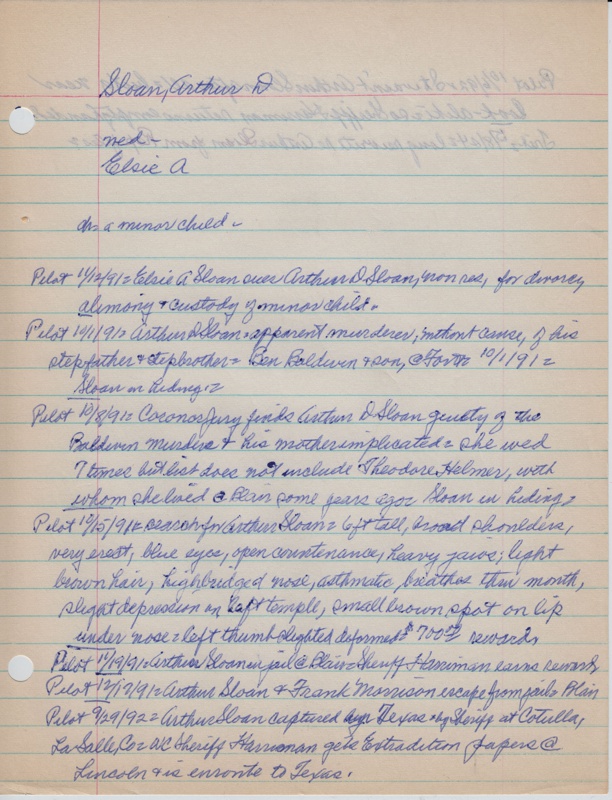 Sloan, Arthur D
wed-
Elsie A
ch= a minor child-
Pilot 11/12/91= Elsie A Sloan over Arthur D Sloan, non res, for divorce,
alimony & custody of minor child.
Pilot 10/1/91= Arthur D Sloan= apparent murderer, without cause, of his
stepfather & stepbrother= Ben Baldwin & son, @ 10/1/91=
Sloan in hiding=
Pilot 10/8/91= Coronor Jury finds Arthur D Sloan guilty of the
Baldwin murders & his mother implicated= she wed
7 times but list does not include Theodore Helmer, with
whom she lived @ Blair some years ago= Sloan in hiding=
Pilot 10/15/91= search for Arthur Sloan= 6ft tall, broad shoulders,
very erect, blue eyes, open countenance, heavy jaws; light
brown hair, high bridged nose, asthmatic, breathes thru mouth,
slight depression on left temple, small brown spot on lip
under nose= left thumb slighted deformed= $700.00 rewards
Pilot 11/19/91= Arthur Sloan in jail @ Blair= Sheriff Harriman earns rewards
Pilot 12/17/91= Arthur Sloan & Frank Morrison escape from jail= Blair
Pilot 9/29/92= Arthur Sloan captured Texas by Sheriff at Cotulla,
La Salle, Co= WC Sheriff Harriman gets Extradition papers @
Lincoln & is enroute to Texas.